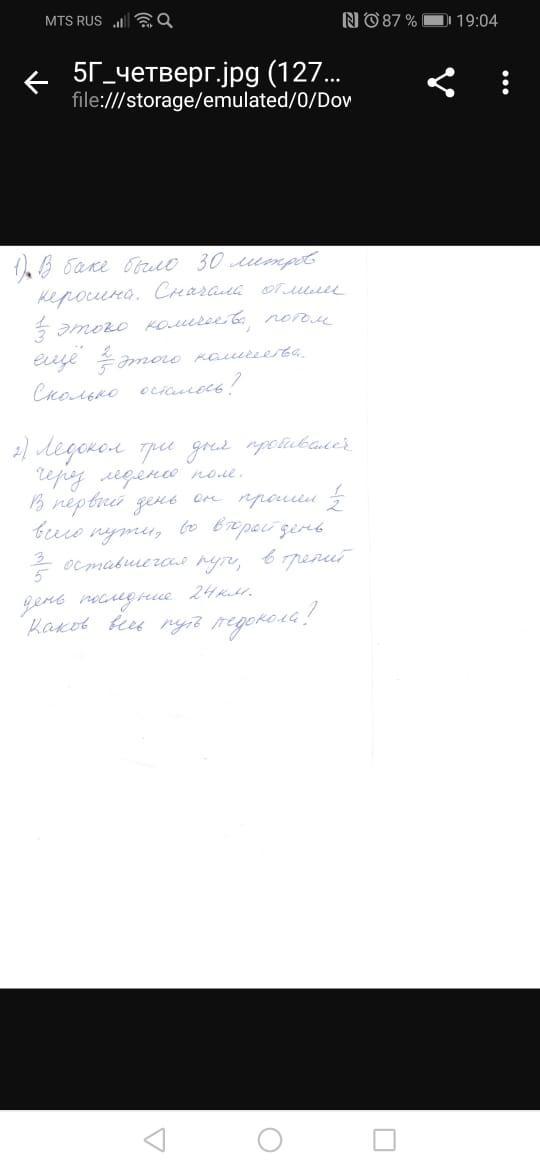 MTS RUS 87 % 19:04
5Г_четверг.jpg (127...
file:///storage/emulated/0/Dow
1). В баке было 30 литров
керосина. Сначала отлили
1/3 этого количества, потом
ещё 2/5 этого количества.
Сколько осталось?
2) Ледокол три дня пробивался
через ледяное поле.
В первый день он прошел 1/2
всего пути, во второй день
3/5 оставшегося пути, в третий
день последние 24 км.
Каков весь путь ледокола?